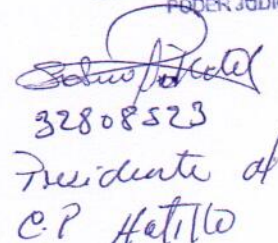 PODER JUDI
32808523
Presidente del
C.P Hatillo